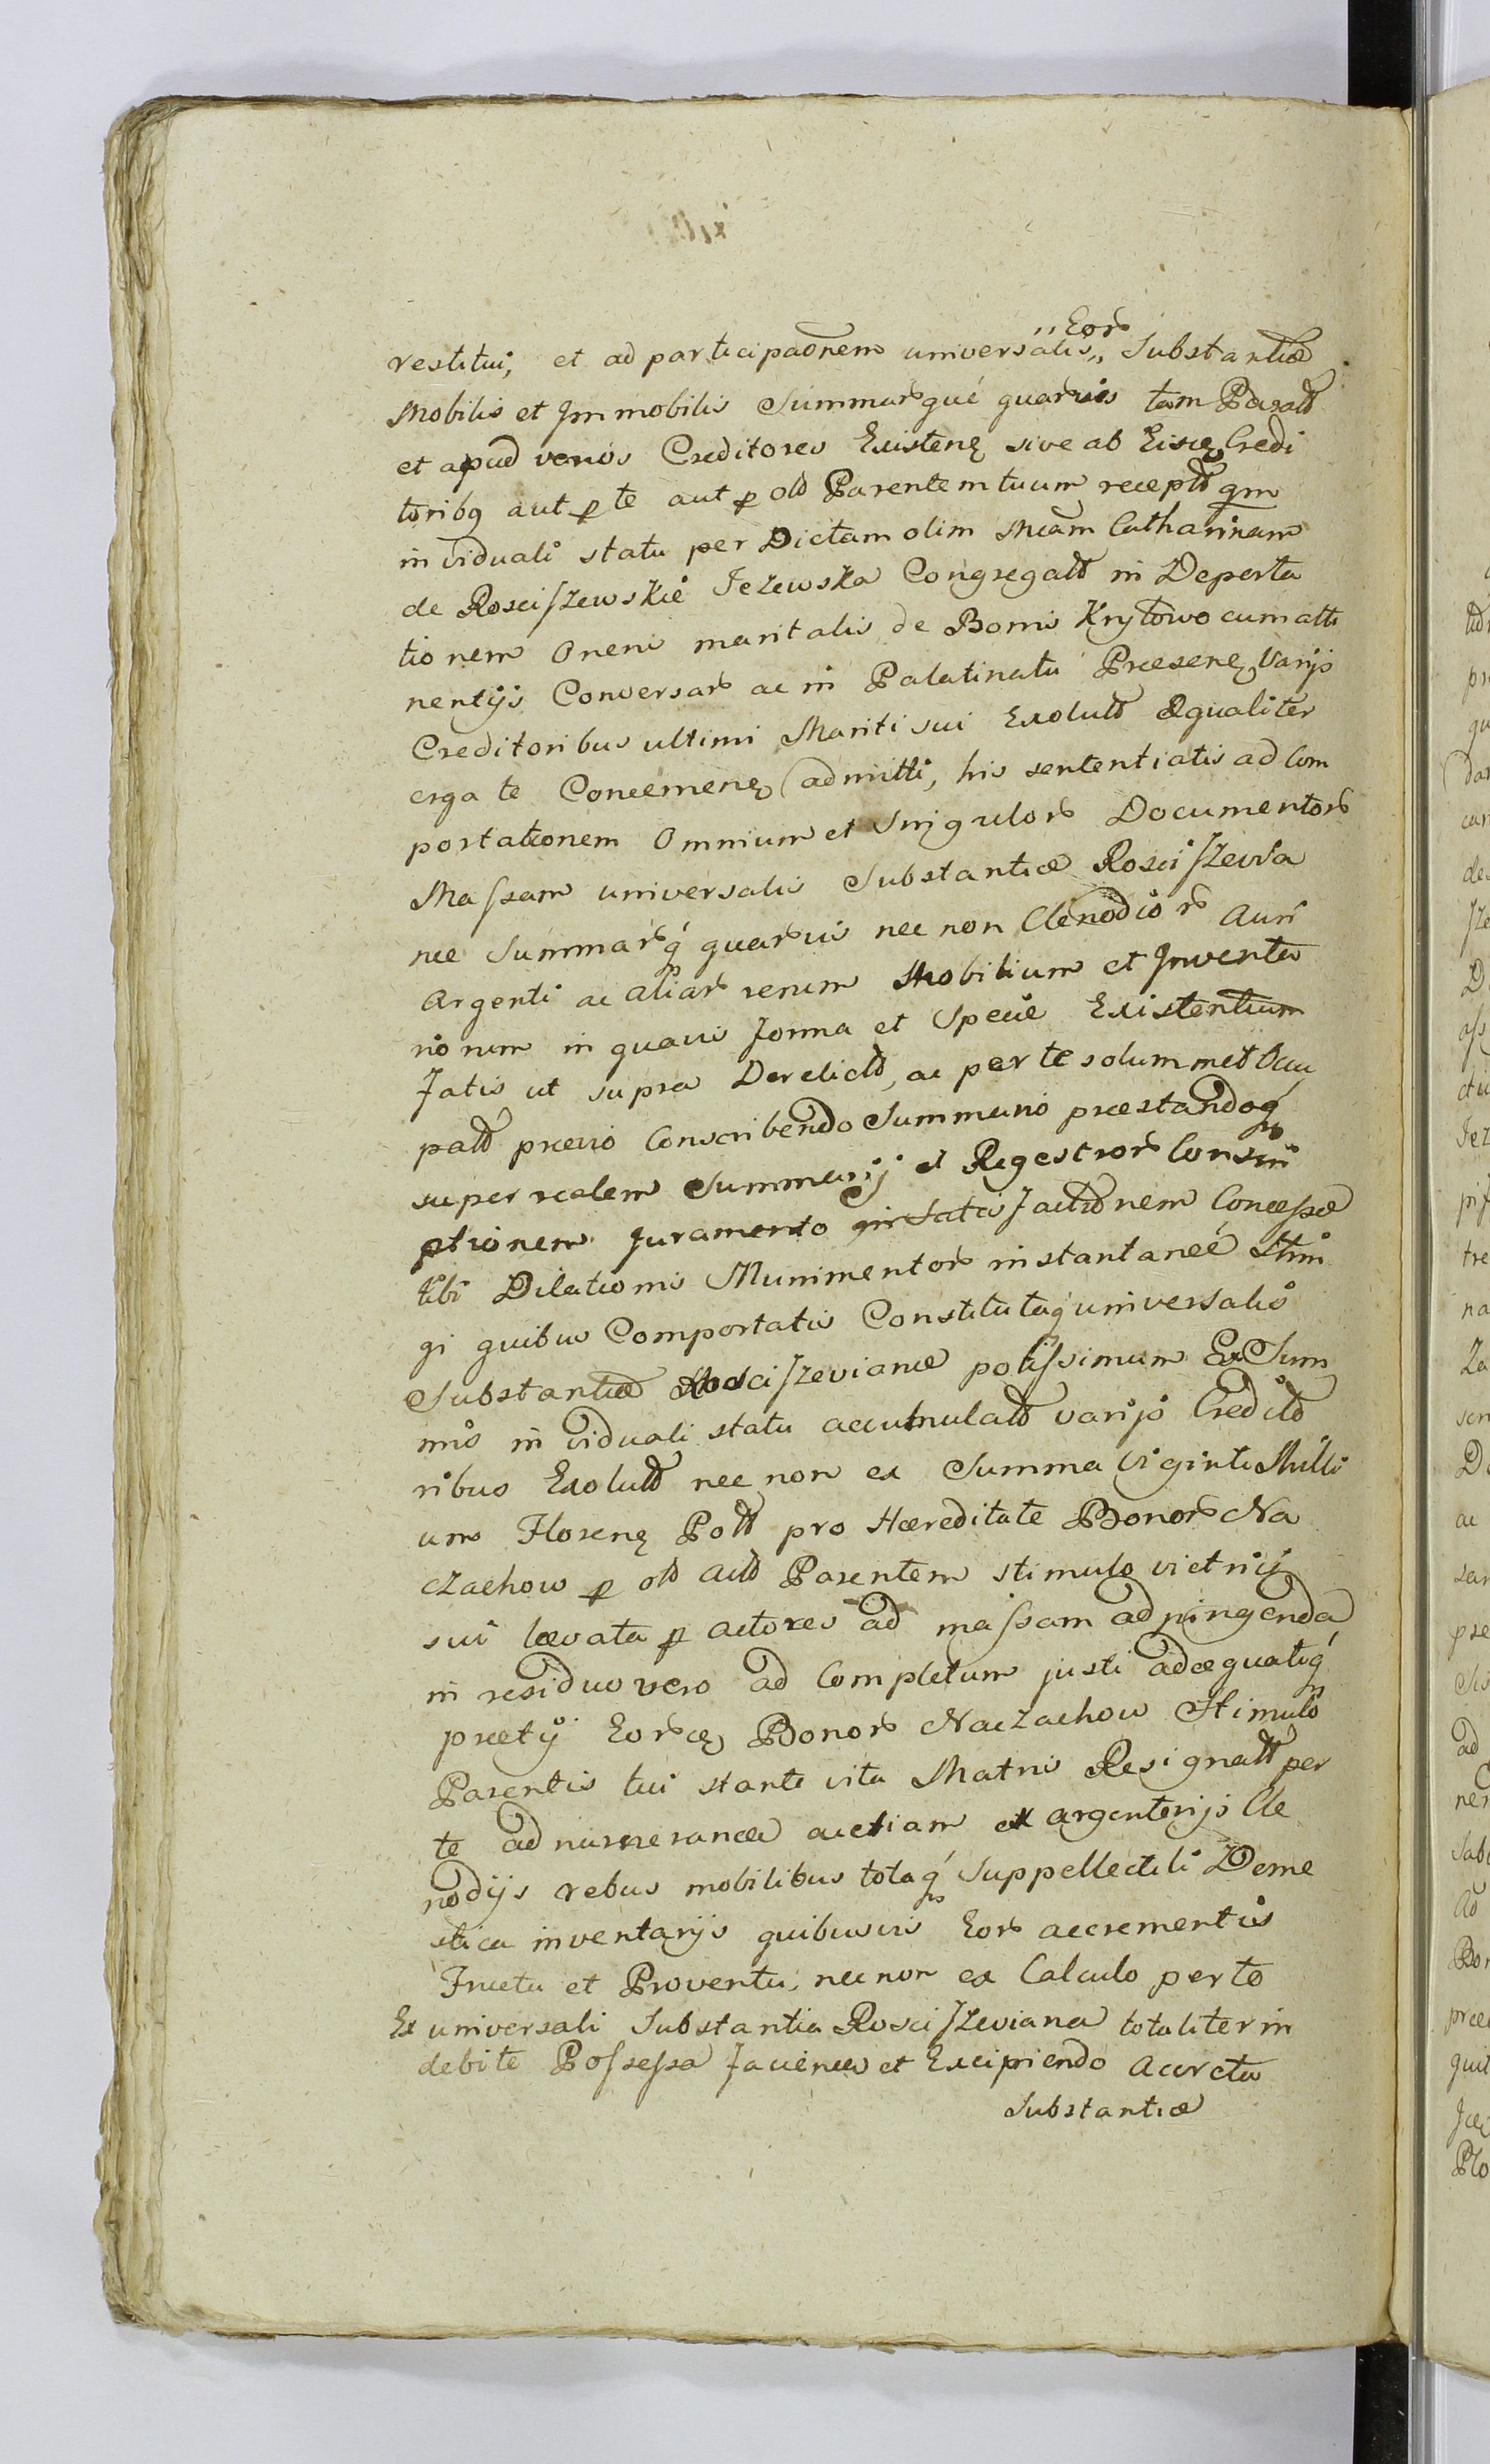 restitui, et ad participaõnem universalis „Eor̃„ Substantiæ
Mobilis et Immobilis Summar̃qué quarvis tam Parat̃
et apud veros Creditores Existenȩ sive ab Eisdȩ Credi
toribq aut ꝑ te aut ꝑ ol̃ Parentem tuum recept̃ qm̃
in viduali statu per Dictam olim Mcam Catharinam
de Rosciszewskie Jezewska Congregat̃ in Deporta
tionem Oneris maritalis de Bonis Krytowo cum atti
nentijs Conversar̃ ac in Palatinatu Præsenȩ Varijs
Creditoribus ultimi Mariti sui Exolut̃ Æqualiter
erga te Concernenȩ admitti, his sententiatis ad Com
portationem Omnium et Singulor̃ Documentor̃
Massam universalis Substantiæ Rosciszewia
næ Summar̃q́ quarvis nec non Clenodior̃ Auri
Argenti ac aliar̃ rerum Mobilium et Inventa
riorum in quavis forma et Specie Existentium
fatis ut supra Derelict̃, ac per te solummet Occu
pat̃ prævio Conscribendo Summario præstandoq́
super realem Summarij et Regestror̃ Conscri
ptionem Juramento Satisfactionem Concessæ
tibi Dilationis Munimentor̃ instantaneé Strin
gi quibus Comportatis Constitutaq́ universalis
Substantiæ Rosciszevianæ potissimum Ex Sum
mis in viduali statu accumulat̃ varijs Credito
ribus Exolut̃ nec non ex Summa Viginti Milli
um Florenȩ Pol̃ pro Hæreditate Bonor̃ Na
czachow ꝑ ol̃ Act̃ Parentem stimulo victrici
sui lævata ꝑ Actores ad massam adpingenda
in residuo vero ad Completum justi adæquatiq́
prætij Eor̃dȩ Bonor̃ Naczachow Stimulo
Parentis tui stante vita Matris Resignat̃ per
te adnumeranda ac etiam ex argenterijs Cle
nodijs rebus mobilibus totaq́ Suppellectili Dome
stica inventarijs quibusvis Eor̃ accrementis
Fructu et Proventu, nec non ex Calculo per te
Ex universali Substantia Rosciszeviana totaliter in
debite Possessa faciendo et Excipiendo Accreta
Substantiæ